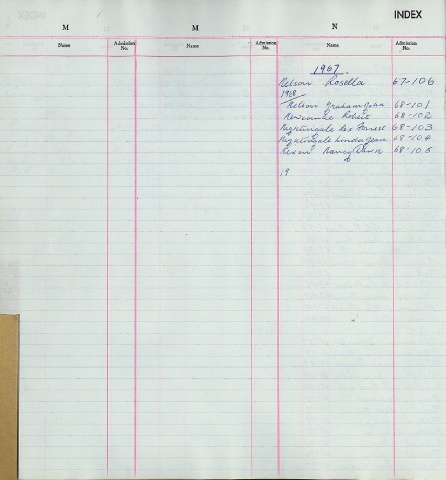 INDEX
M M N
Name Admission No. Name Admission No. Name Admission No.
1967
Nelson Rosella 67-106
1968
Nelson Graham John 68-101
Newcombe Robert 68-102
Nightingale Rex Forrest 68-103
Nightingale Linda Jean 68-104
Nixon Nancy 68-105
19